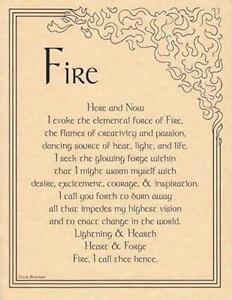 Fire
Here and Now
I evoke the elemental force of Fire,
the flames of creativity and passion,
dancing source of heat, light, and life.
I seek the glowing forge within
that I might warm myself with
desire, excitement, courage, & inspiration.
I call you forth to burn away
all that impedes my highest vision
and to enact change in the world.
Lightning & Hearth
Heart & Forge
Fire, I call thee hence.